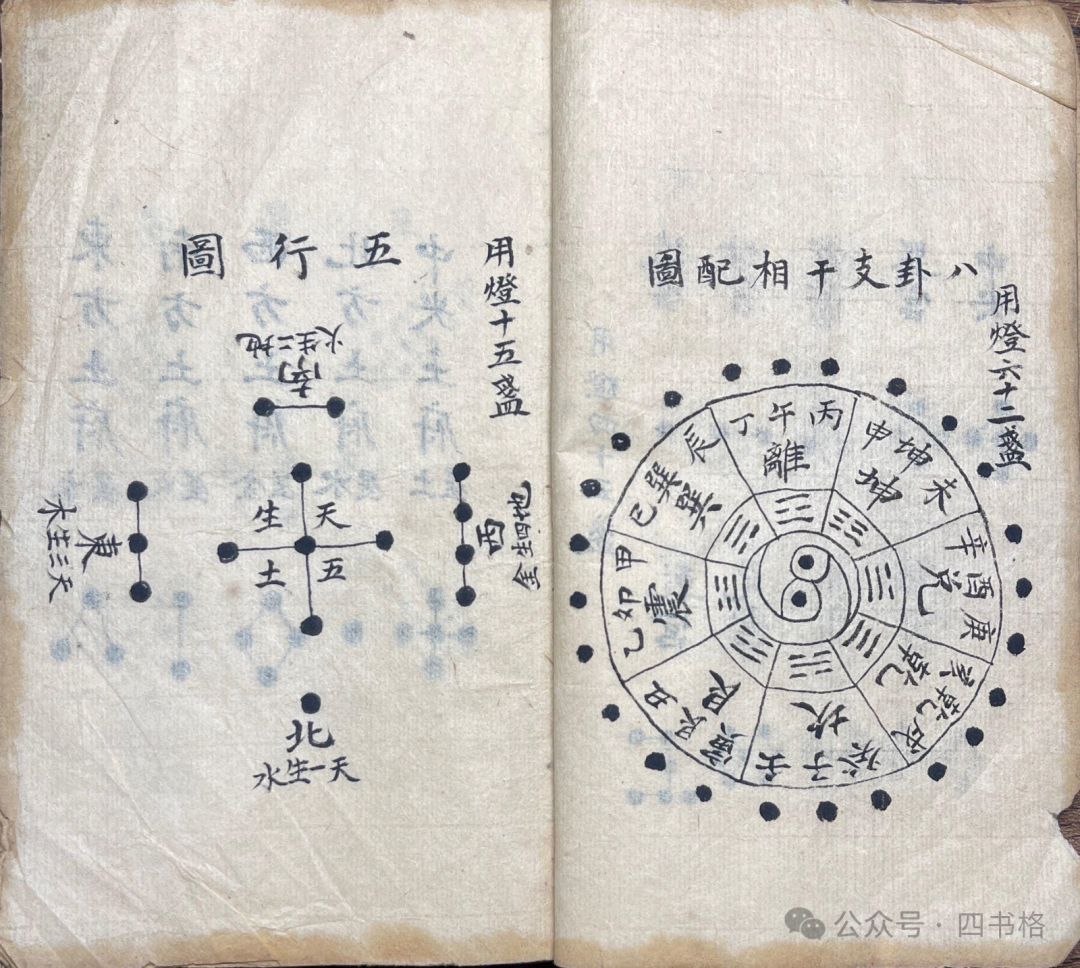 八卦支干相配圖
用燈六十二盞
丙午丁
離
申坤未
坤
辛酉庚
兌
乾
乾戌
坎
子
艮
丑艮寅
甲卯乙
震
辰巽巳
巽
五行圖
用燈十五盞
南
地二生火
西
地四生金
天五
生土
東
天三生木
北
天一生水
公众号·四书格